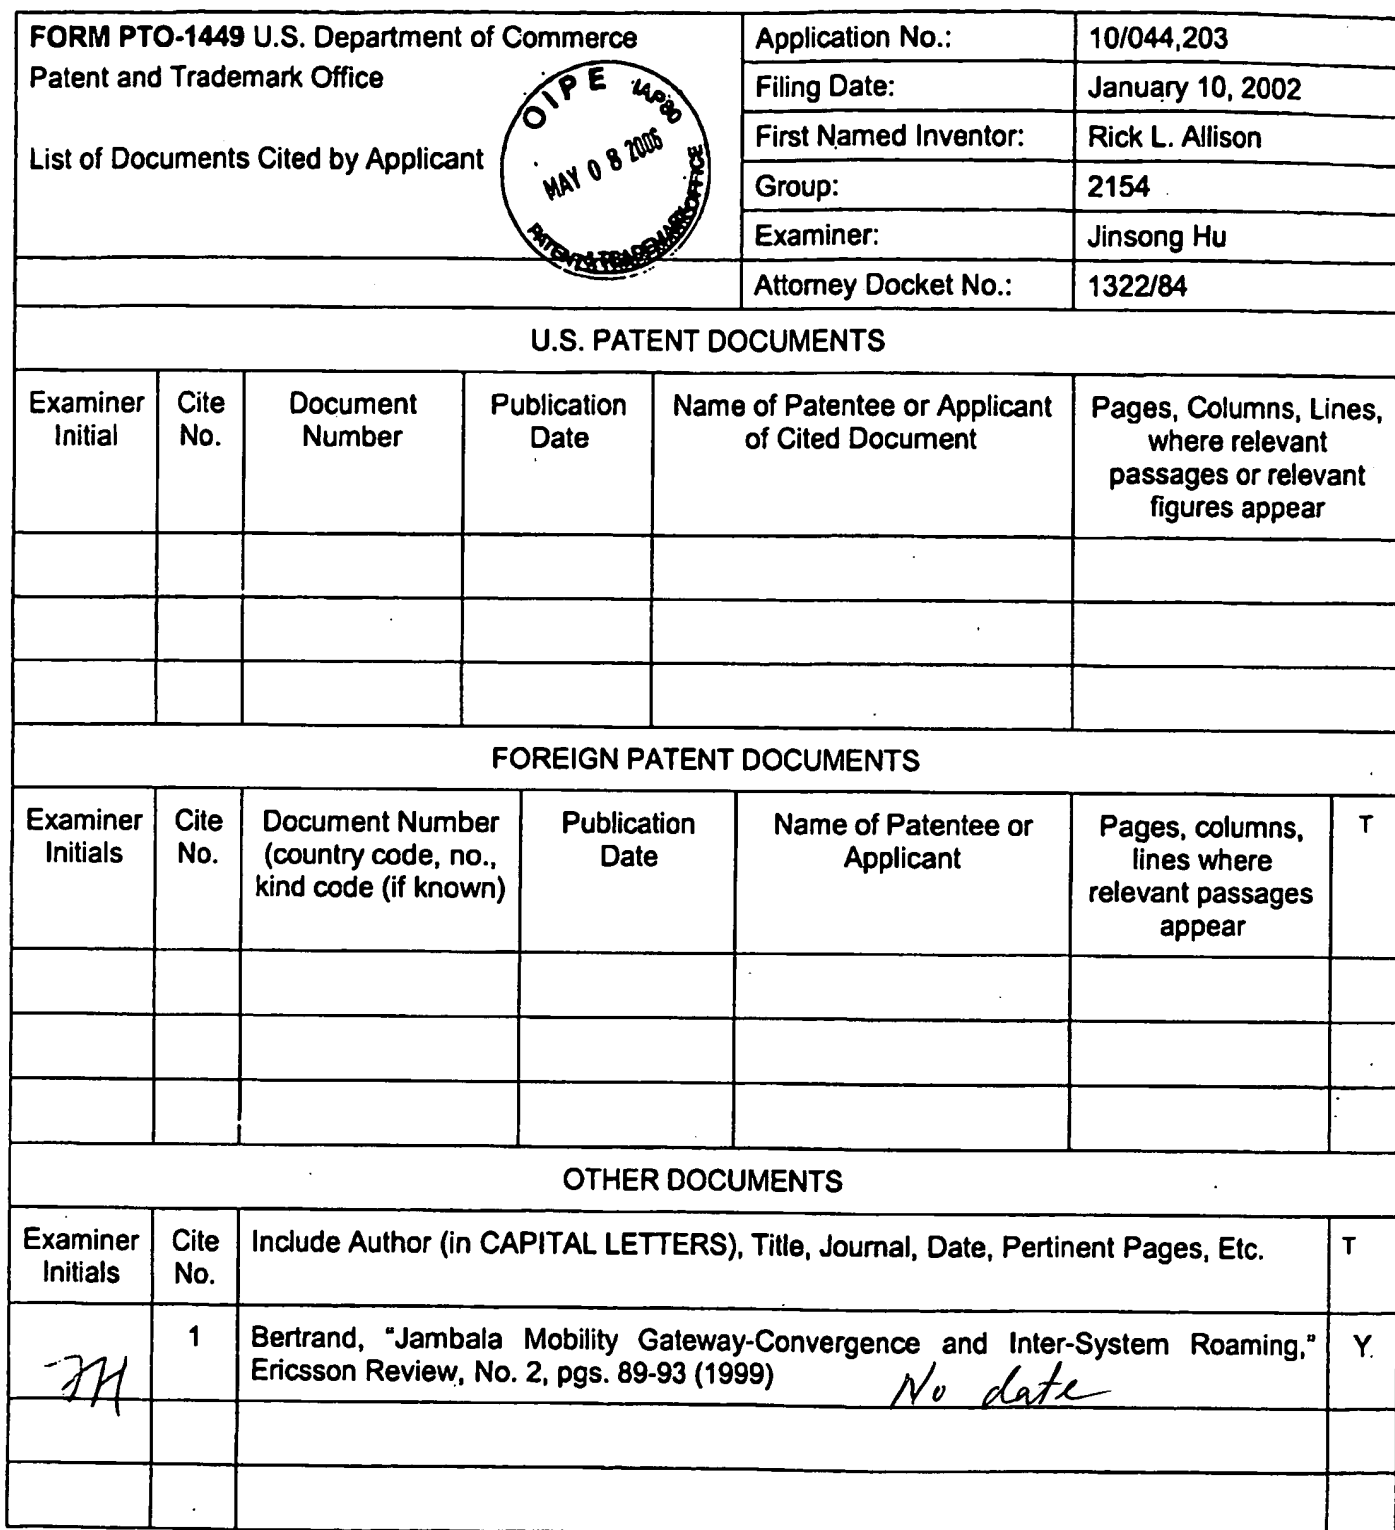 FORM PTO-1449 U.S. Department of Commerce
Patent and Trademark Office
List of Documents Cited by Applicant
OIPE IAP80
MAY 08 2006
PATENT & TRADEMARK OFFICE
Application No.: 10/044,203
Filing Date: January 10, 2002
First Named Inventor: Rick L. Allison
Group: 2154
Examiner: Jinsong Hu
Attorney Docket No.: 1322/84
U.S. PATENT DOCUMENTS
Examiner Initial
Cite No.
Document Number
Publication Date
Name of Patentee or Applicant of Cited Document
Pages, Columns, Lines, where relevant passages or relevant figures appear
FOREIGN PATENT DOCUMENTS
Examiner Initials
Cite No.
Document Number (country code, no., kind code (if known)
Publication Date
Name of Patentee or Applicant
Pages, columns, lines where relevant passages appear
T
OTHER DOCUMENTS
Examiner Initials
Cite No.
Include Author (in CAPITAL LETTERS), Title, Journal, Date, Pertinent Pages, Etc.
T
1
Bertrand, "Jambala Mobility Gateway-Convergence and Inter-System Roaming,"
Ericsson Review, No. 2, pgs. 89-93 (1999)
No date
Y